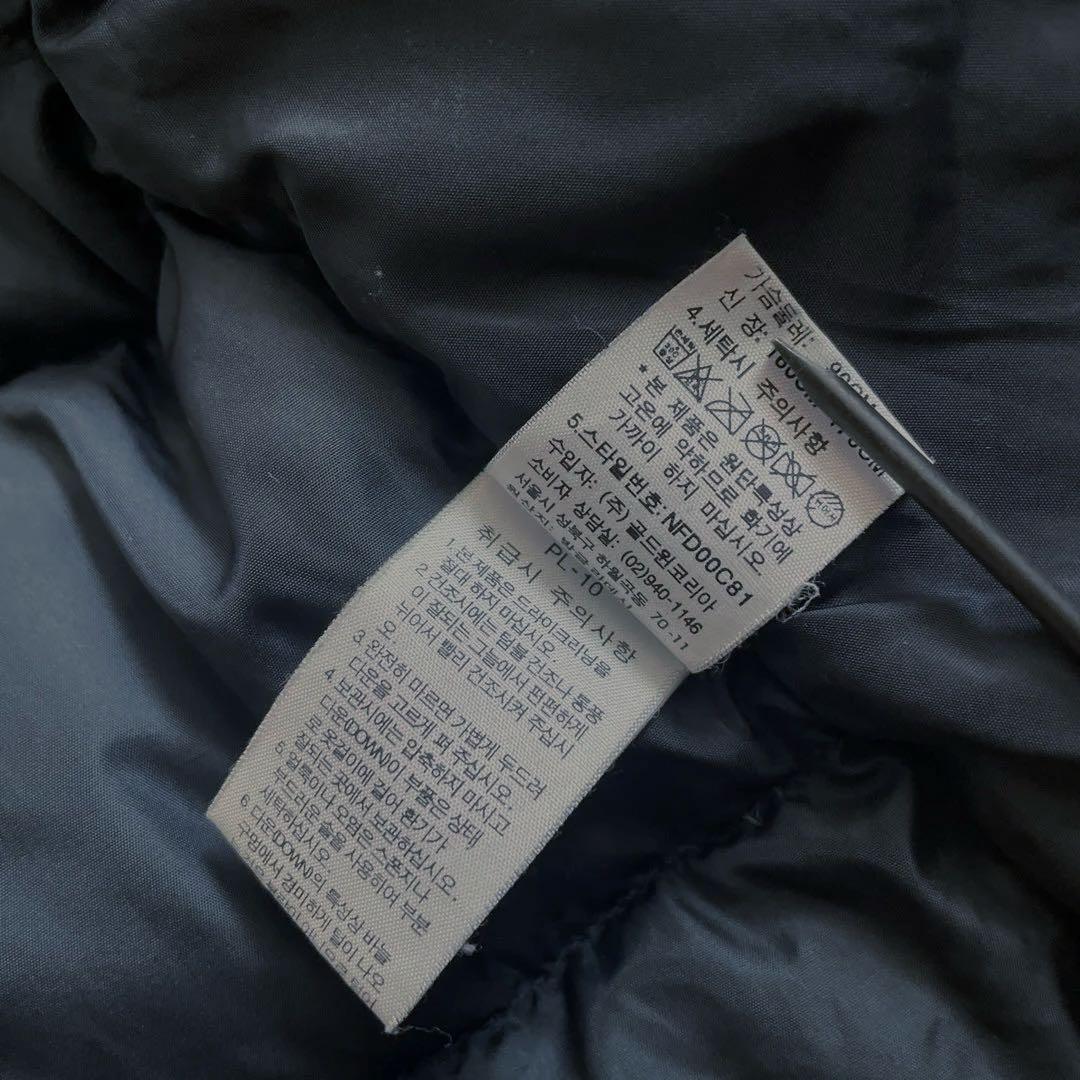 가슴둘레: 90CM
신 장:
4.세탁시 주의사항
*본 제품은 원단특성상
고온에 약하므로 화기에
가까이 하지 마십시오.
5.스타일번호:NFD00C81
수입자: (주)골드윈코리아
소비자 상담실: (02)940-1146
서울시 성북구 하월곡동 70-11
PL-10
취급시 주의 사항
1.본제품은 드라이크리닝을
절대 하지 마십시오
2.건조시에는 텀블 건조나 통풍
이 잘되는 그늘에서 편편하게
뉘어서 빨리 건조시켜 주십시
오.
3.완전히 마르면 가볍게 두드려
다운을 고르게 펴 주십시오.
4.보관시에는 압축하지 마시고
다운(DOWN)이 부품은 상태
로 옷걸이에 걸어 환기가
잘되는 곳에서 보관하십시오.
5.얼룩이나 오염은 스폰지나
부드러운 솔을 사용하여 부분
세탁하십시오
6.다운(DOWN)의 특성상 바늘
구멍에서 경미하게 털이 나오